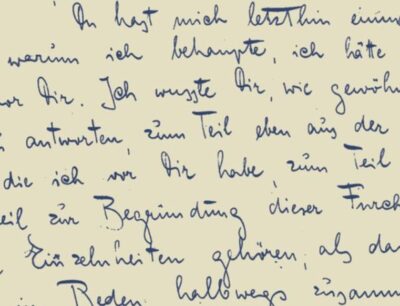 Du hast mich letzthin einma
warum ich behaupte, ich hätte
vor Dir. Ich wusste Dir, wie gewöhn
antworten, zum Teil eben aus der
die ich vor Dir habe, zum Teil
eil zur Begründung dieser Furch
Einzelheiten gehören, als da
Reden halbwegs zusamm